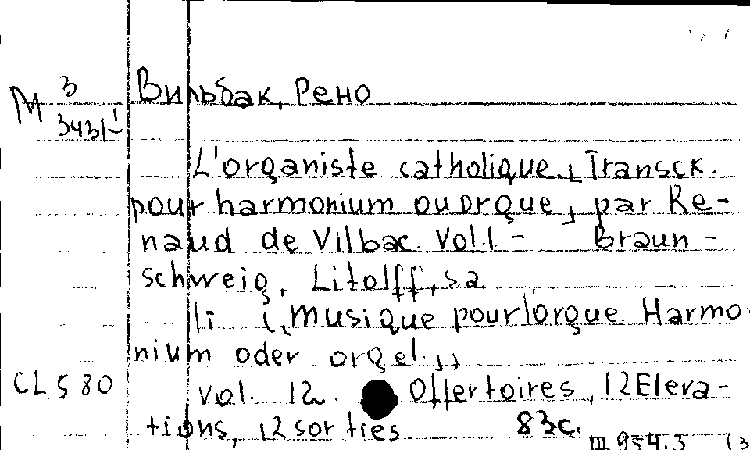 М 3
3431-I
Вильбак, Рено
L'organiste catholique, Transck.
pour harmonium ou orgue, par Re-
naud de Vilbac. Vol 1 - Braun-
schweig, Litolff, sa
li („Musique pour lorgue Harmo-
nium oder orgel.„
CL 580
Vol. 12. Offertoires, 12 Eleva-
tions, 12 sorties 83c.
III 954.3